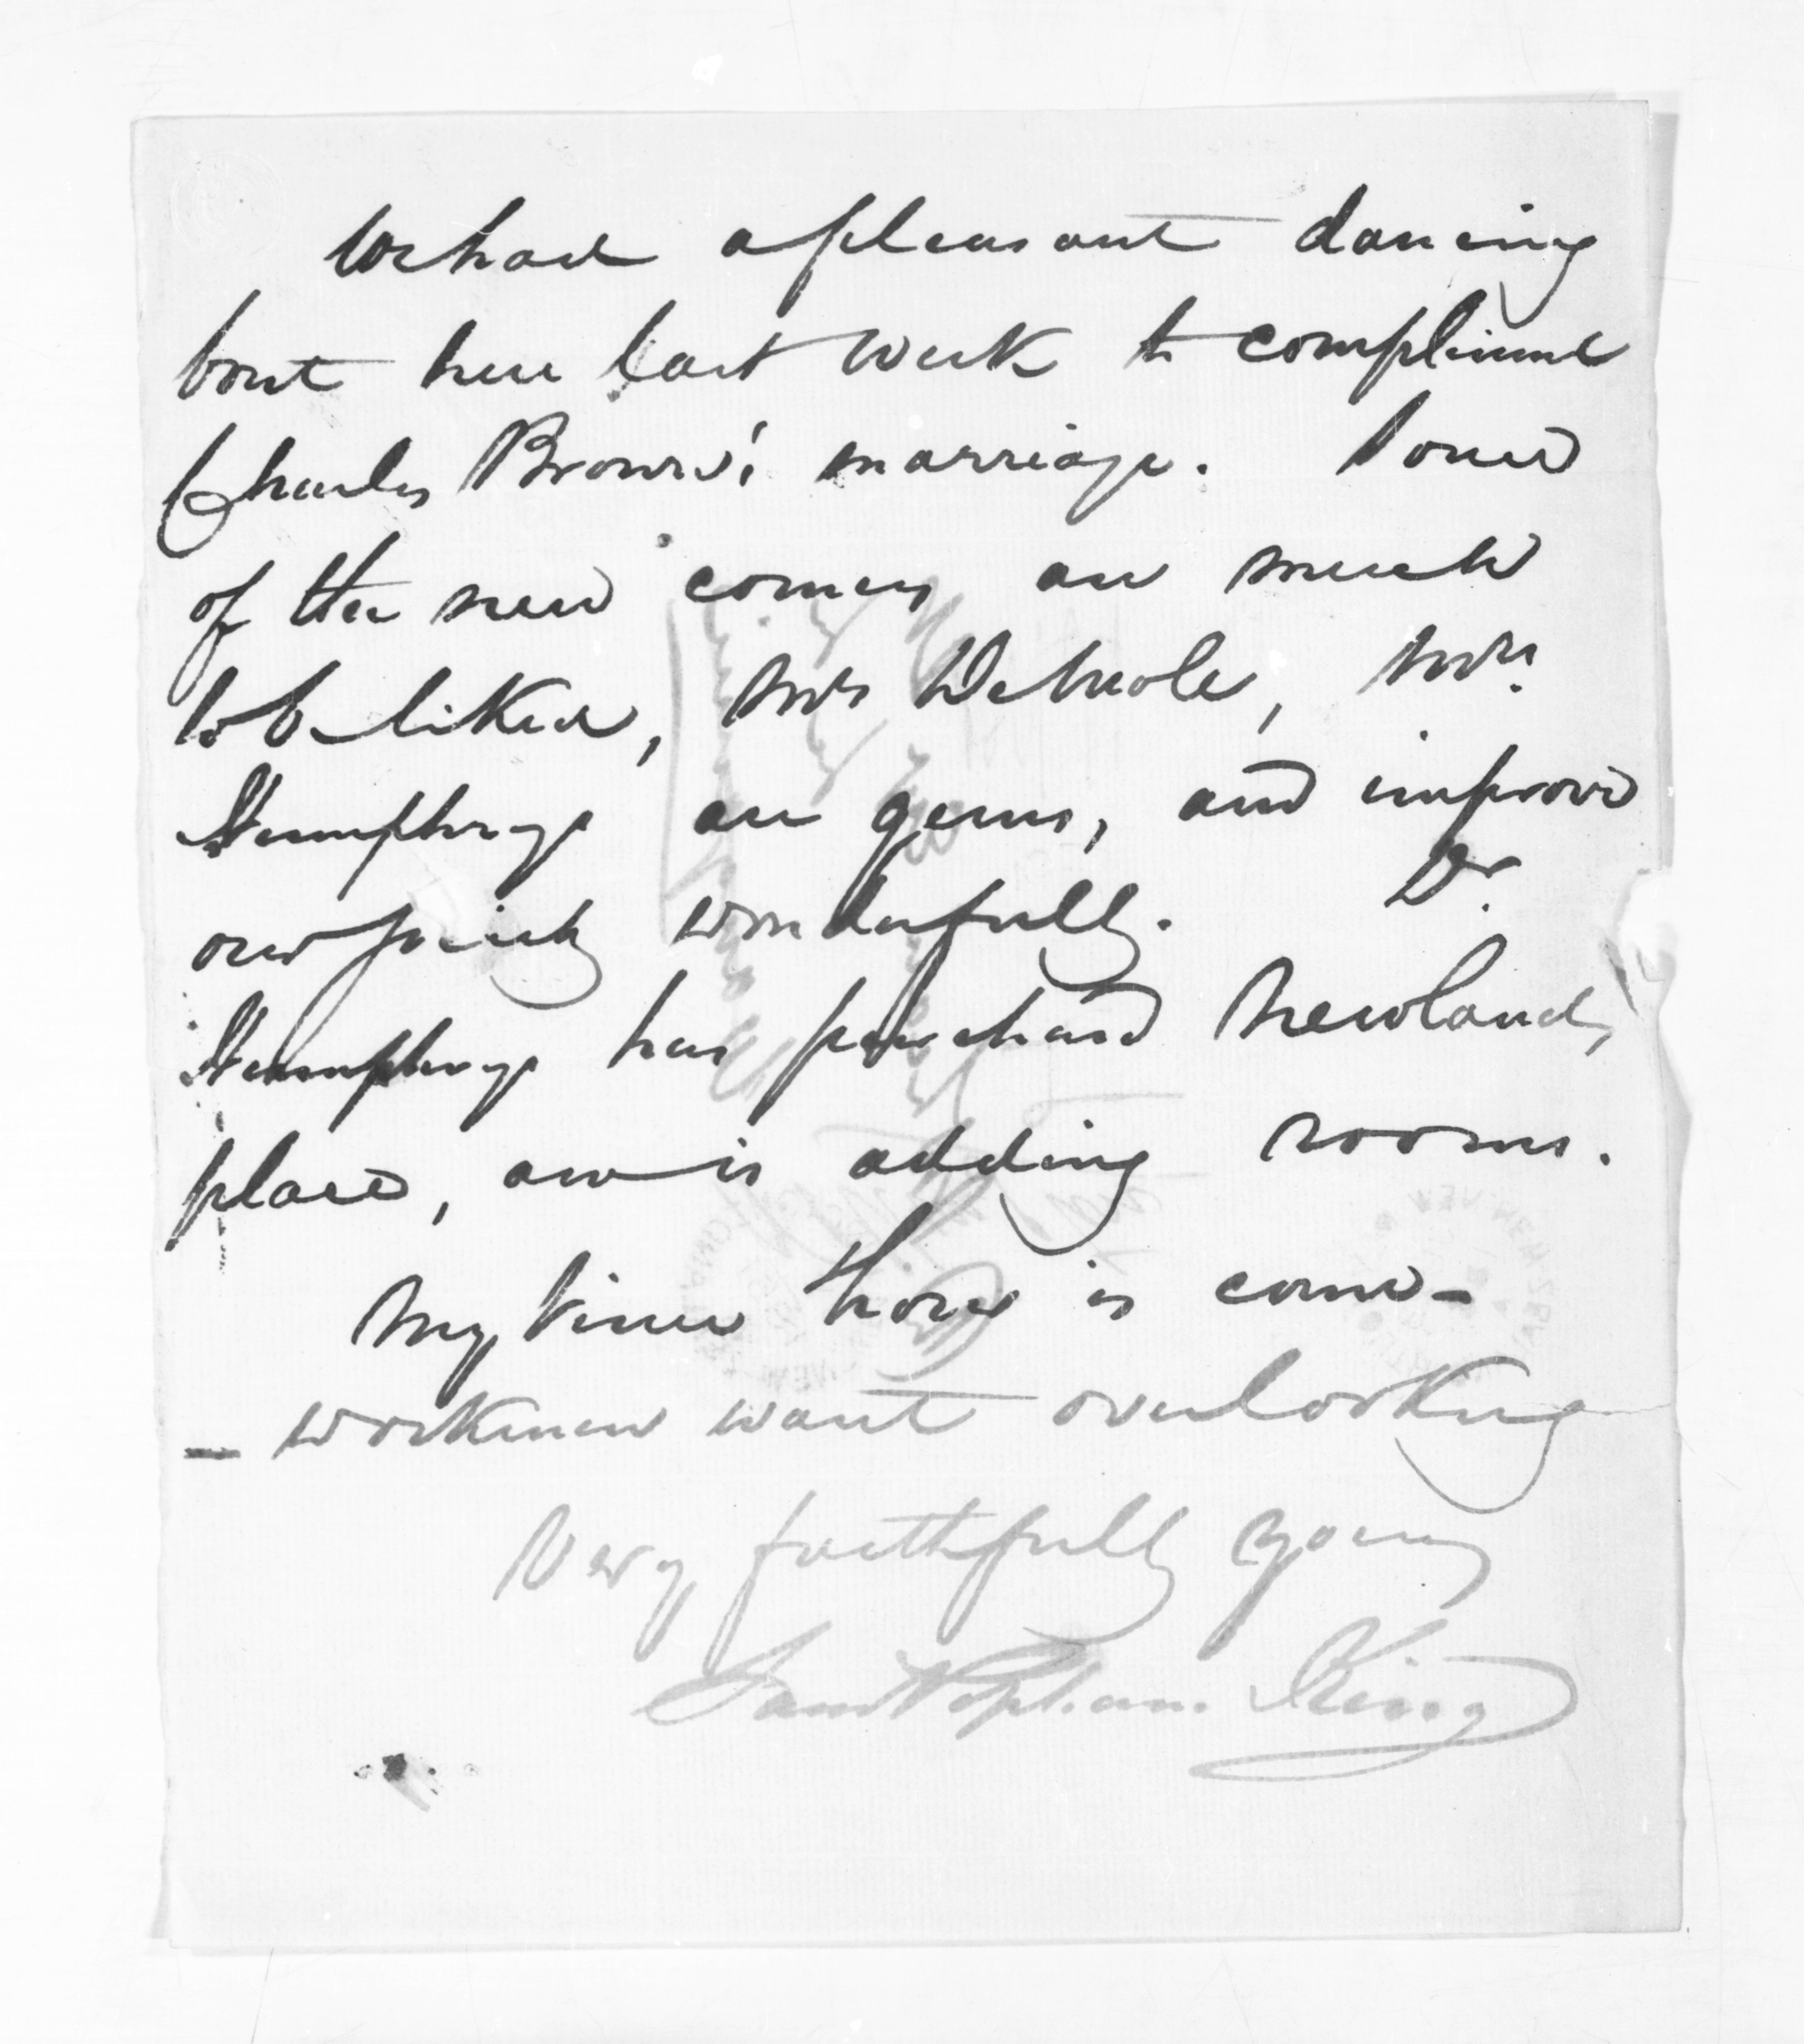 We had a pleasant dancing
bout here last week to compliment
Charles Brown's marriage. Some
of the new comers are much
to be liked, Mrs
Humphrys are gems, and improve
our society wonderfully. Dr.
Humphrys has purchased Newland's
place, and is adding rooms.
My time there is come -
- workmen want overlooking
Very faithfully yours
Saml Popham King